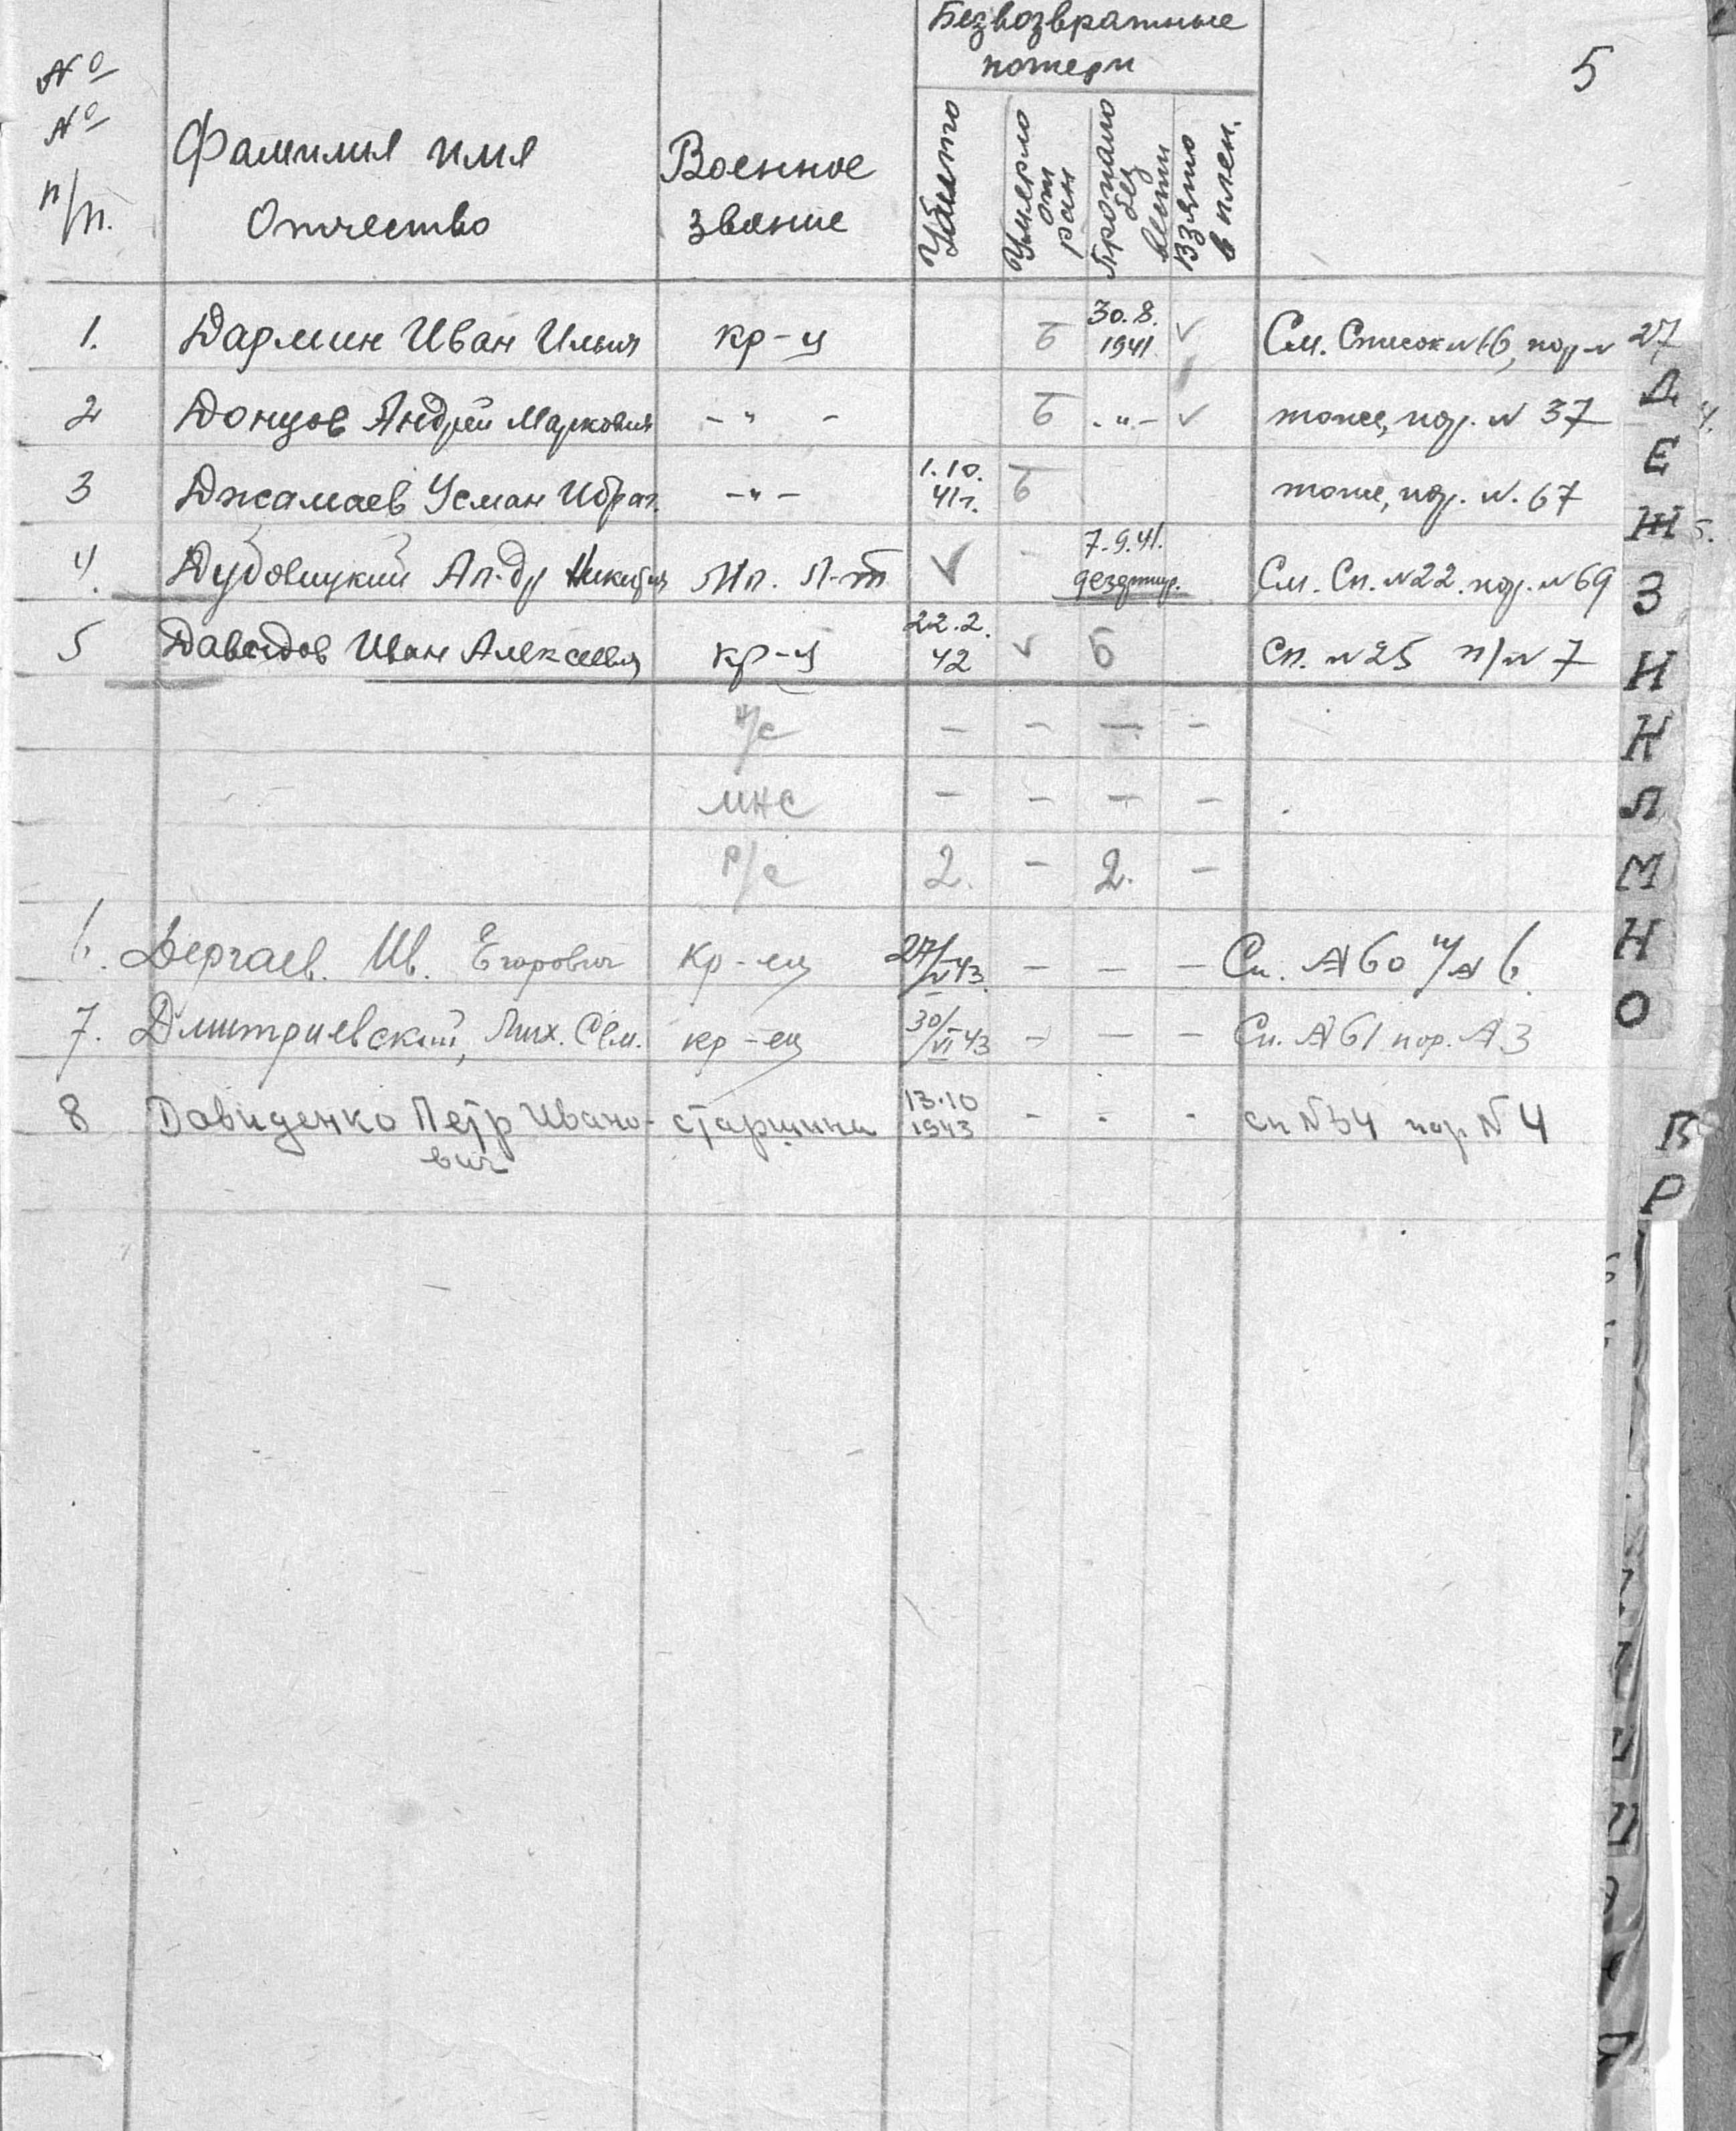 Безвозвратные
потери
5
№
№
п/п.
Фамилия имя
Отчество
Военное
звание
Убито
Умерло
от
ран
Пропало
без
вести
Взято
в плен.
1. Дармин Иван Ильич кр-ц Б 30.8. 1941 ✓ См. Список №16, пор № 27
2 Донцов Андрей Маркович -"- Б -"- ✓ тоже, пор. № 37
3 Джамаев Усман Ибраг. -"- 1.10. 41г. Б тоже, пор. №. 67
4. Дубовицкий Ал-др Никитич Мл. Л-т ✓ - 7.9.41. дезертир. См. Сп. №22. пор. №69
5 Давыдов Иван Алексеевич кр-ц 22.2. 42 ✓ Б Сп. №25 п/№ 7
н/с - - - -
мнс - - - -
р/с 2. - 2. -
6. Дергаев. Ив. Егорович кр-ец 27/V 43. - - - Сп. №60 п/№ 6.
7. Дмитриевский, Мих. Сем. кр-ец 30/VI 43 - - - Сп. №61 пор. №3
8 Давиденко Петр Ивано- старшина 13.10 1943 - - - сп №34 пор №4
вич
Д
Е
Ж
З
И
К
Л
М
Н
О
Р